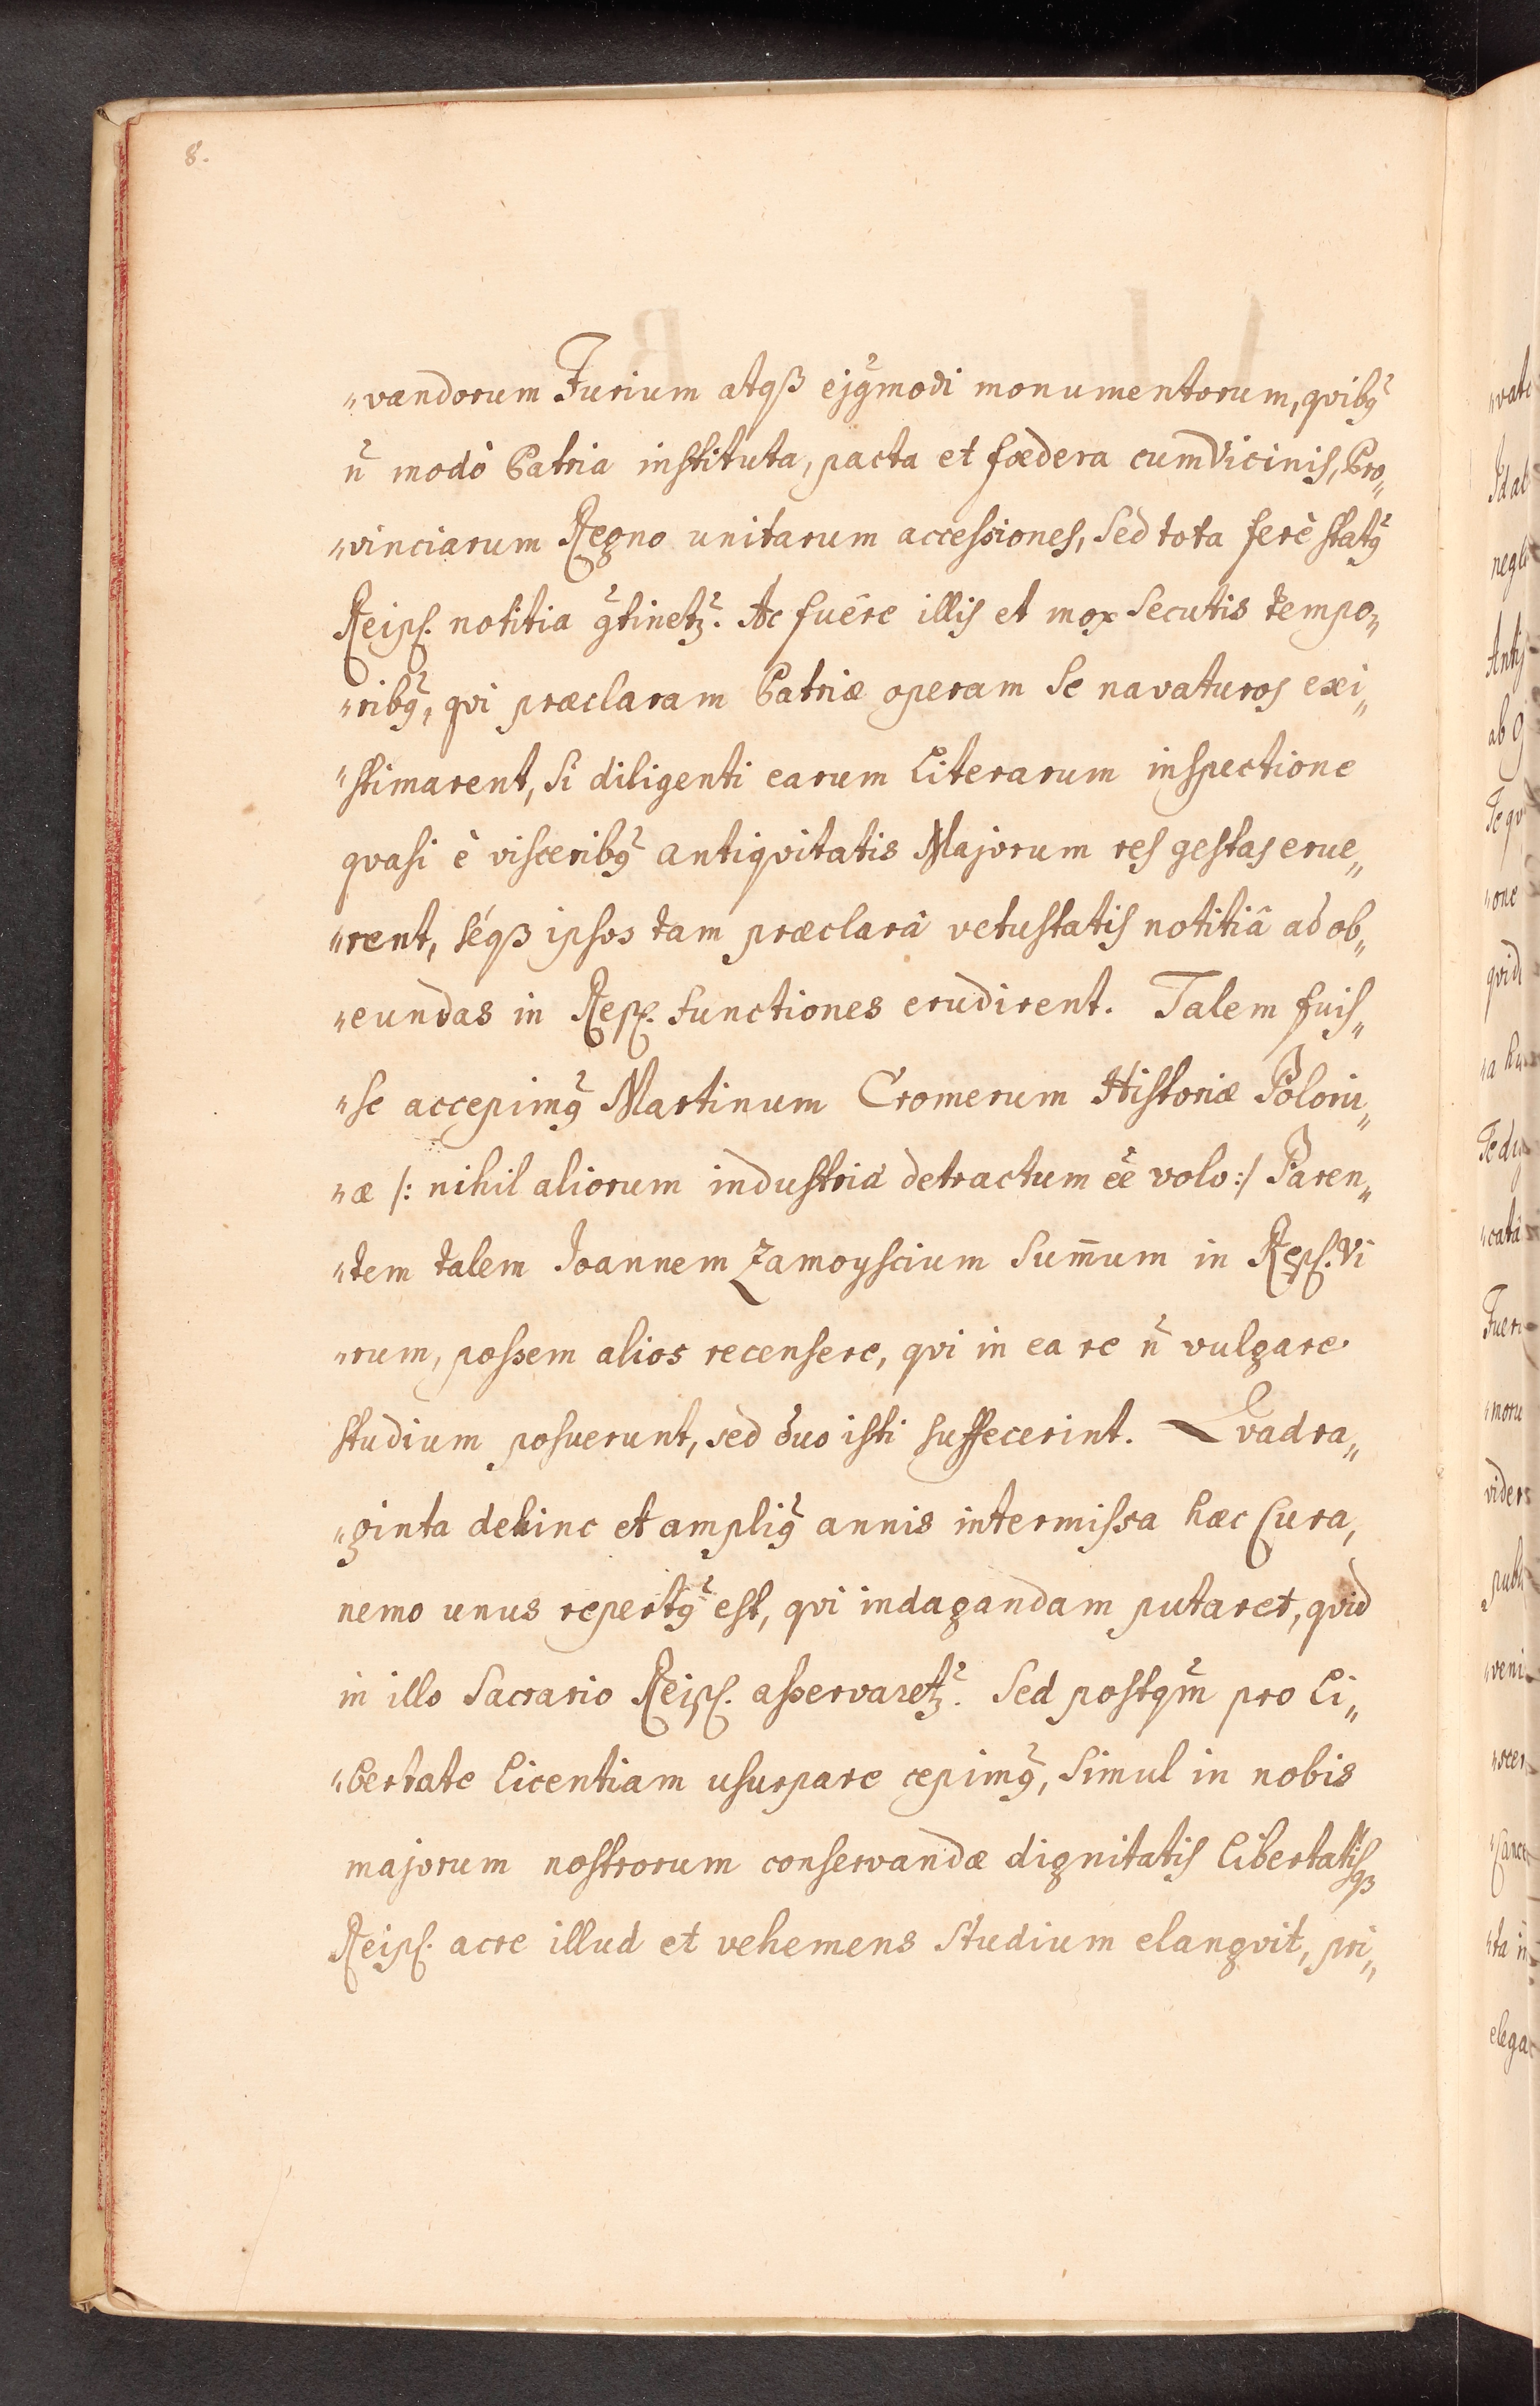 8.
„vandorum Jurium atqß ejꝯmodi monumentorum, qvibꝯ
n̄ modò Patria instituta, pacta et fœdera cum Vicinis, Pro„
„vinciarum Regno unitarum accessiones, Sed tota ferè statꝯ
Reipꝭ. notitia ꝯtinetꝫ. Ac fuêre illis et mox Secutis tempo„
„ribꝯ, qvi præclaram Patriæ operam Se navaturos exi„
„stimarent, Si diligenti earum Literarum inspectione
qvasi è visceribꝯ antiqvitatis Majorum res gestas erue„
„rent, séqß ipsos tam præclarâ vetustatis notitiâ ad ob„
„eundas in Repꝭ. functiones erudirent. Talem fuis„
„se accepimꝯ Martinum Cromerum Historiæ Poloni„
„æ /: nihil aliorum industriâ detractum ee̅ volo :/ Paren„
„tem talem Joannem Zamoyscium Sum̄um in Repꝭ. Vi
„rum, possem alios recensere, qvi in ea re n̄ vulgare
studium posuerunt, sed duo isti suffecerint. Qvadra„
„ginta dehinc et ampliꝯ annis intermissa hæc Cura,
nemo unus repertꝯ est, qvi indagandam putaret, qvid
in illo Sacrario Reipꝭ. asservaretꝫ. Sed postqm̄ pro Li„
„bertate Licentiam usurpare cepimꝯ, Simul in nobis
majorum nostrorum conservandæ dignitatis Libertatisqꝫ
Reipꝭ. acre illud et vehemens Studium elangvit, pri„